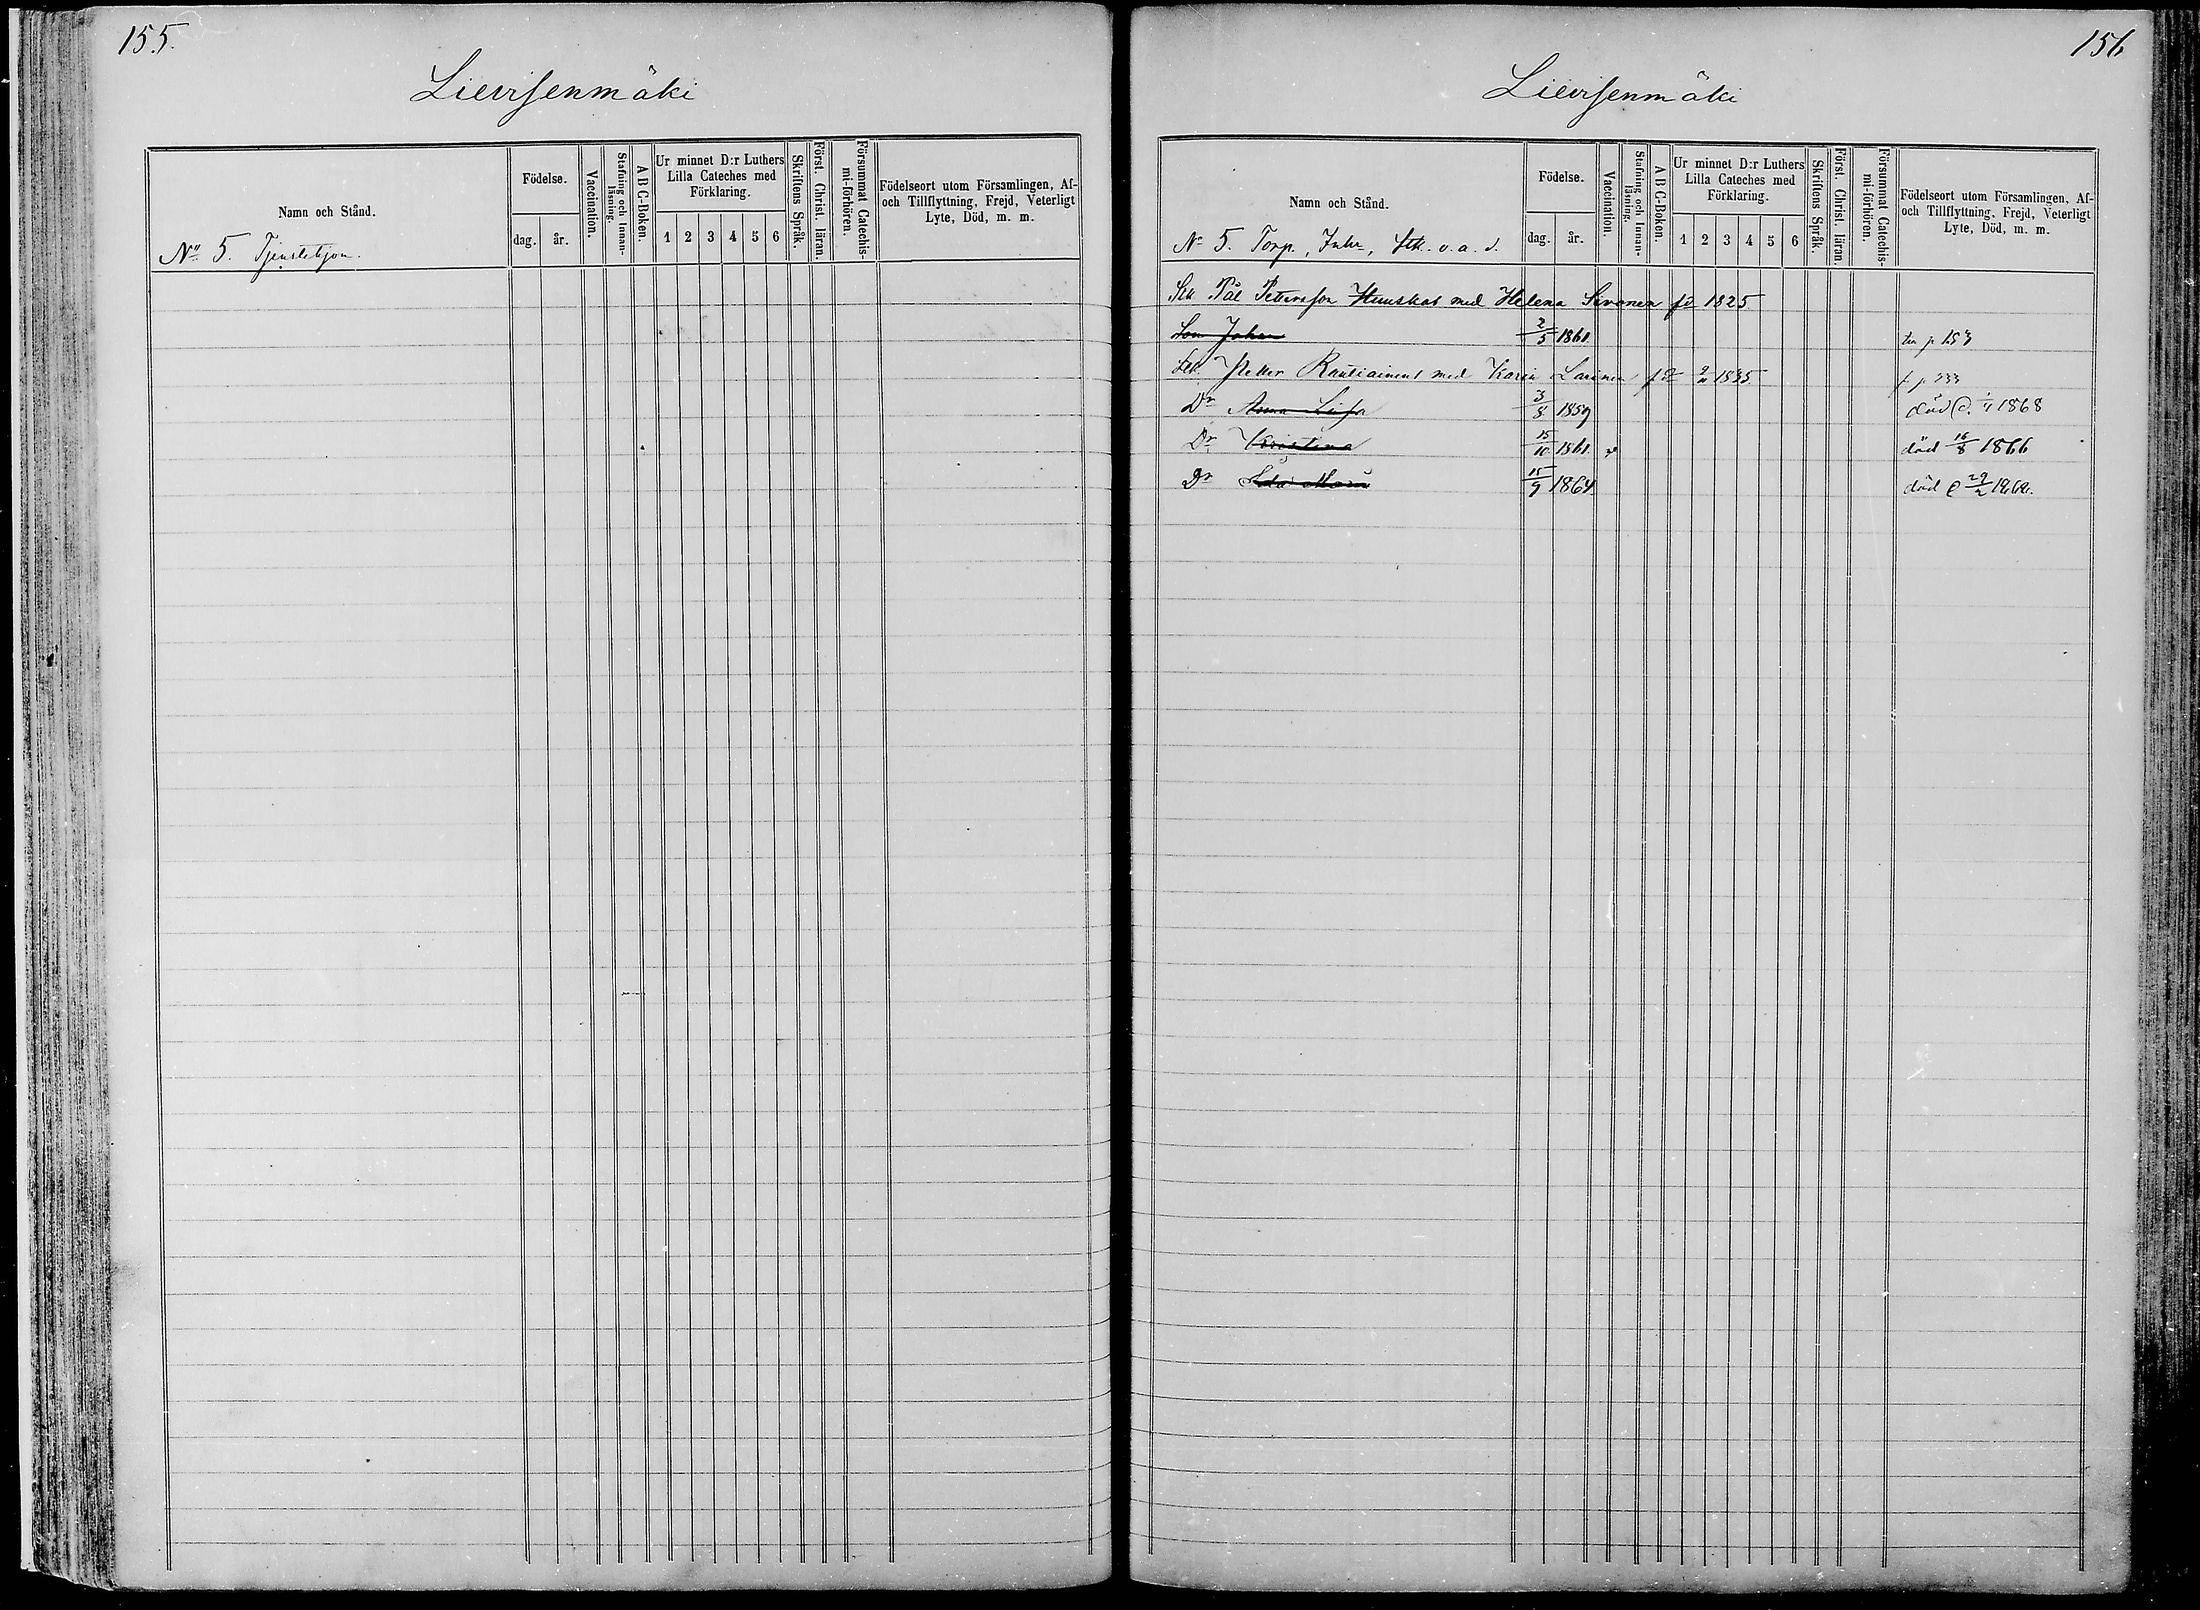 155.
Lieviſenmäki
Namn och Stånd.
Födelse.
dag.
år.
Vaccination.
Stafning och Innan-
läsning.
A B C-Boken.
Ur minnet D:r Luthers
Lilla Cateches med
Förklaring.
1 2 3 4 5 6
Skriftens Språk.
Först. Christ. läran.
Försummat Catechis-
mi-förhören.
Födelseort utom Församlingen, Af-
och Tillflyttning, Frejd, Veterligt
Lyte, Död, m. m.
No 5. Tjenstehjon.
156
Lieviſenmäki
Namn och Stånd.
Födelse.
dag.
år.
Vaccination.
Stafning och Innan-
läsning.
A B C-Boken.
Ur minnet D:r Luthers
Lilla Cateches med
Förklaring.
1 2 3 4 5 6
Skriftens Språk.
Först. Christ. läran.
Försummat Catechis-
mi-förhören.
Födelseort utom Församlingen, Af-
och Tillflyttning, Frejd, Veterligt
Lyte, Död, m. m.
No 5. Torp., Inh., Stk. o. a. d.
Pål Petersſon Huuskos med Helena 1825
Son Johan 2/5 1861 p 153
Petter Rautiainens med Karin 1835
Dr Anna Liiſa 3/8 1859 död 1868
Dr Kristina 15/10 1861 död 16/8 1866
Dr Ida Maria 15/9 1864 död 29/2 1868.